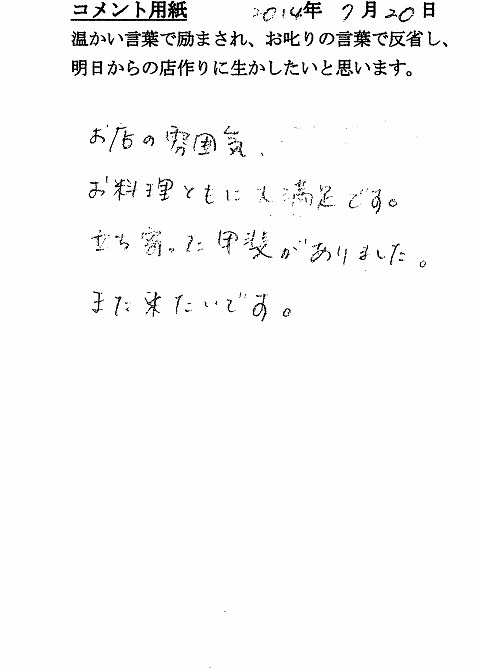 コメント用紙 2014年 7月20日
温かい言葉で励まされ、お叱りの言葉で反省し、
明日からの店作りに生かしたいと思います。
お店の雰囲気、
お料理ともに大満足です。
立ち寄った甲斐がありました。
また来たいです。